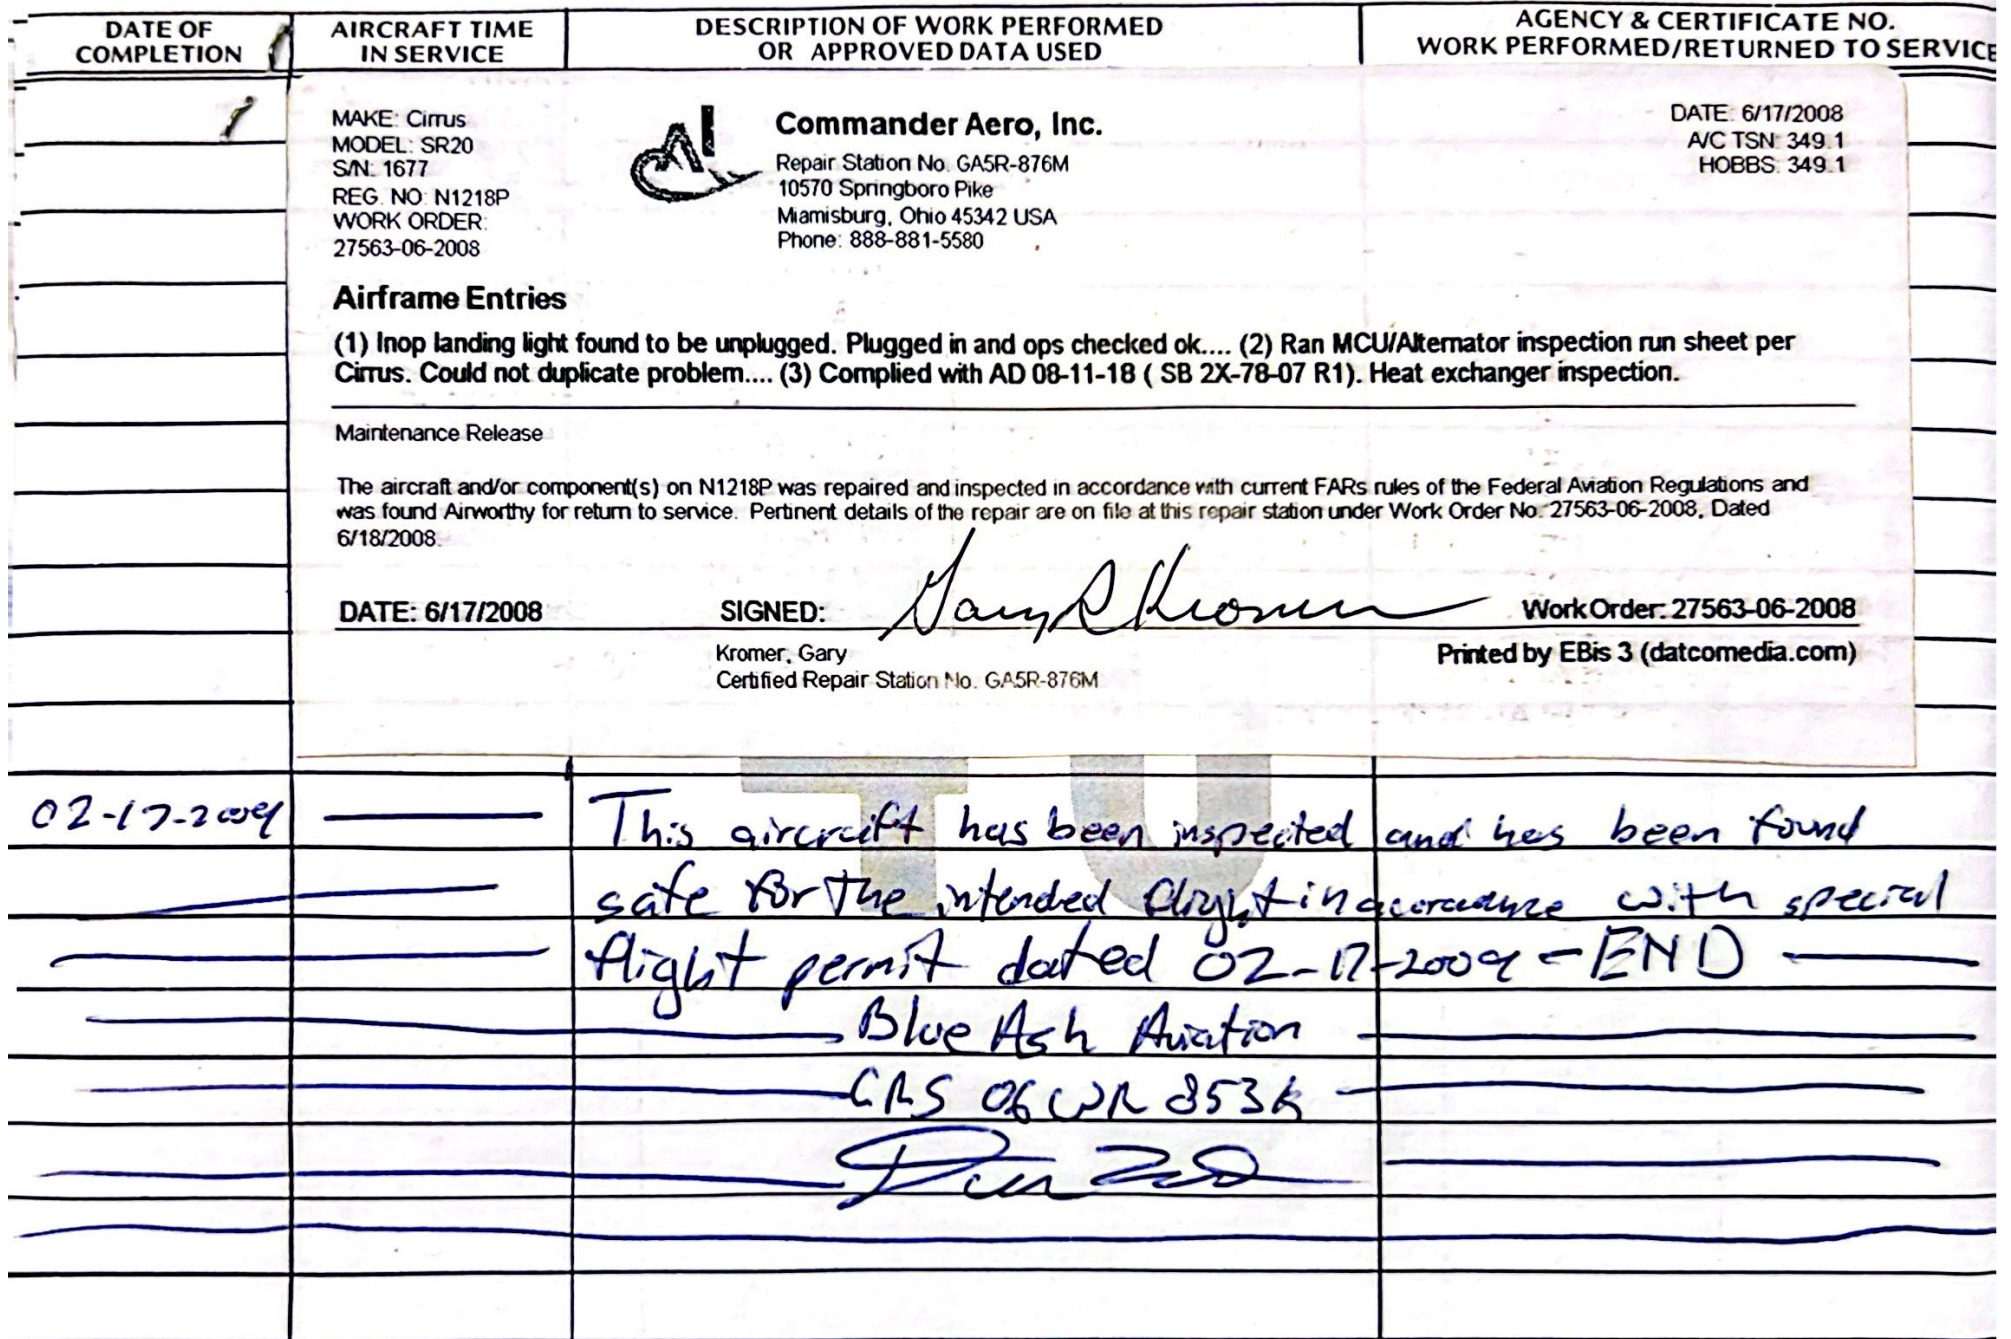 DATE OF
COMPLETION
AIRCRAFT TIME
IN SERVICE
DESCRIPTION OF WORK PERFORMED
OR APPROVED DATA USED
AGENCY & CERTIFICATE NO.
WORK PERFORMED/RETURNED TO SERVICE
MAKE: Cirrus
MODEL: SR20
S/N: 1677
REG. NO: N1218P
WORK ORDER:
27563-06-2008
Commander Aero, Inc.
Repair Station No. GA5R-876M
10570 Springboro Pike
Miamisburg, Ohio 45342 USA
Phone: 888-881-5580
DATE: 6/17/2008
A/C TSN: 349.1
HOBBS: 349.1
Airframe Entries
(1) Inop landing light found to be unplugged. Plugged in and ops checked ok.... (2) Ran MCU/Alternator inspection run sheet per
Cirrus. Could not duplicate problem.... (3) Complied with AD 08-11-18 ( SB 2X-78-07 R1). Heat exchanger inspection.
Maintenance Release
The aircraft and/or component(s) on N1218P was repaired and inspected in accordance with current FARs rules of the Federal Aviation Regulations and
was found Airworthy for return to service. Pertinent details of the repair are on file at this repair station under Work Order No. 27563-06-2008, Dated
6/18/2008.
DATE: 6/17/2008
SIGNED: Gary R Kromer
Work Order: 27563-06-2008
Kromer, Gary
Certified Repair Station No. GA5R-876M
Printed by EBis 3 (datcomedia.com)
02-17-2009
This aircraft has been inspected and has been found
safe for the intended flight in accordance with special
flight permit dated 02-17-2009 - END
Blue Ash Aviation
CRS 06WR853K